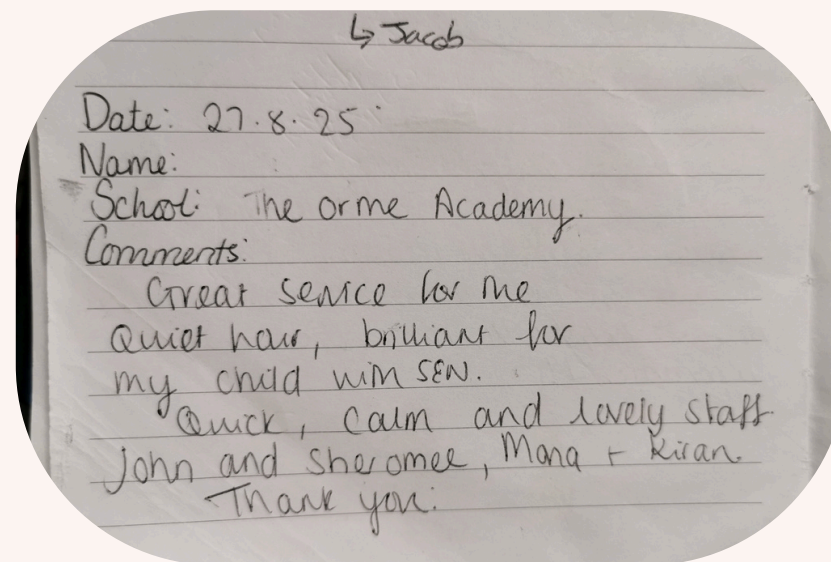 ↳ Jacob
Date: 27.8.25
Name:
School: The Orme Academy.
Comments:
Great service for me
Quiet hour, brilliant for
my child with SEN.
Quick, Calm and lovely staff
John and Sheromee, Mona + Kiran.
Thank you.